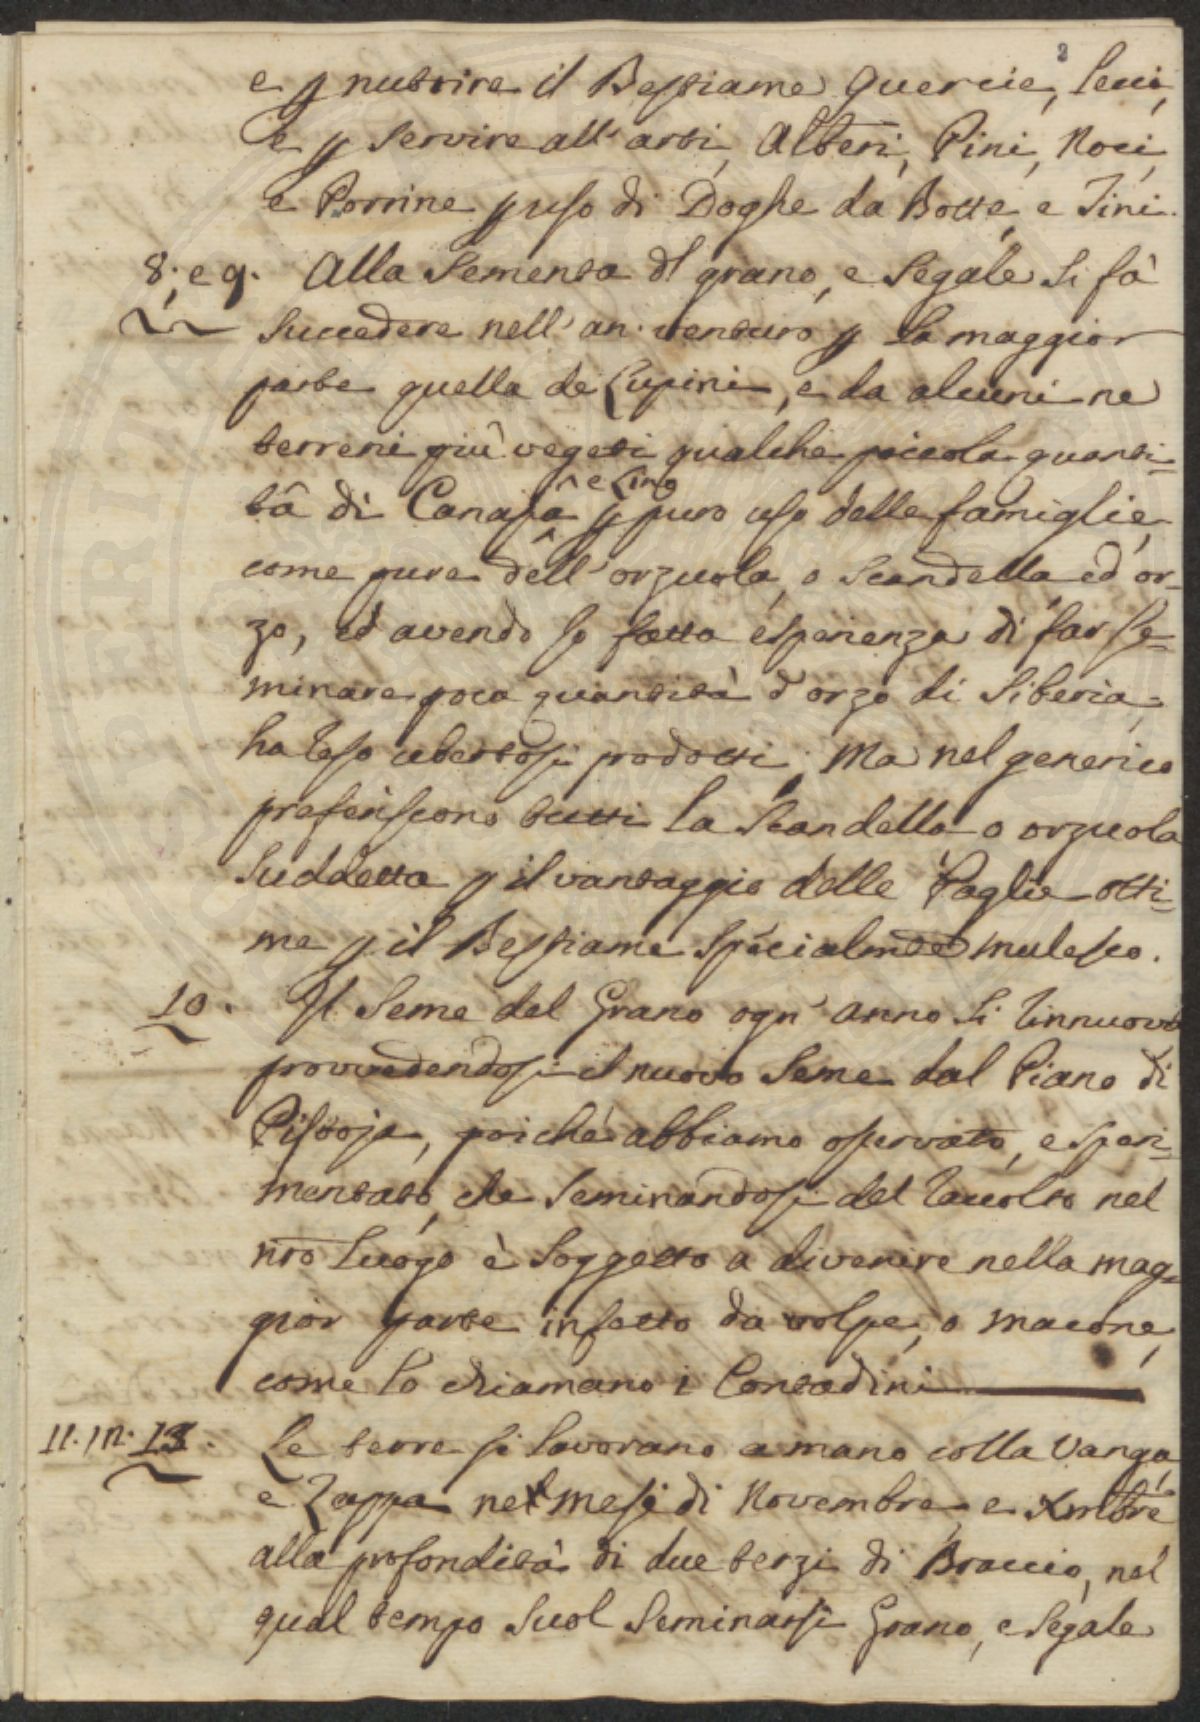 2
e p nutrire il Bestiame Quercie, Lecci,
e p servire all'arti, Alberi, Pini, Noci,
e Porrine p uso di Doghe da Botte, e Tini.
8. e 9. Alla Sementa dl grano, e Segale si fà
succedere nell'an. venturo p la maggior
parte quella de Lupini, e da alcuni ne
terreni più vegeti qualche piccola quanti=
tà di Canapa e Lino p puro uso delle famiglie,
come pure dell'orzuola, o Scandella, ed or=
zo, ed avendo io fatta esperienza di far se=
minare poca quantità d'orzo di Siberia,
ha reso ubertosi prodotti; Ma nel generico
preferiscono tutti la Scandella o orzuola
suddetta p il vantaggio delle Paglie otti=
me p il Bestiame specialmte mulesco.
10. Il Seme del Grano ogn'anno si rinnuova
provvedendosi il nuovo Seme dal Piano di
Pistoja, poichè abbiamo osservato, e speri=
mentato, che seminandosi del raccolto nel
nro luogo è soggetto a divenire nella mag=
gior parte infetto da volpe, o macone,
come lo chiamano i Contadini
11. 12. 13. Le terre si lavorano a mano colla Vanga,
e Zappa nel mesi di Novembre, e Xmbre
alla profondità di due terzi di Braccio, nel
qual tempo suol seminarsi Grano, e Segale